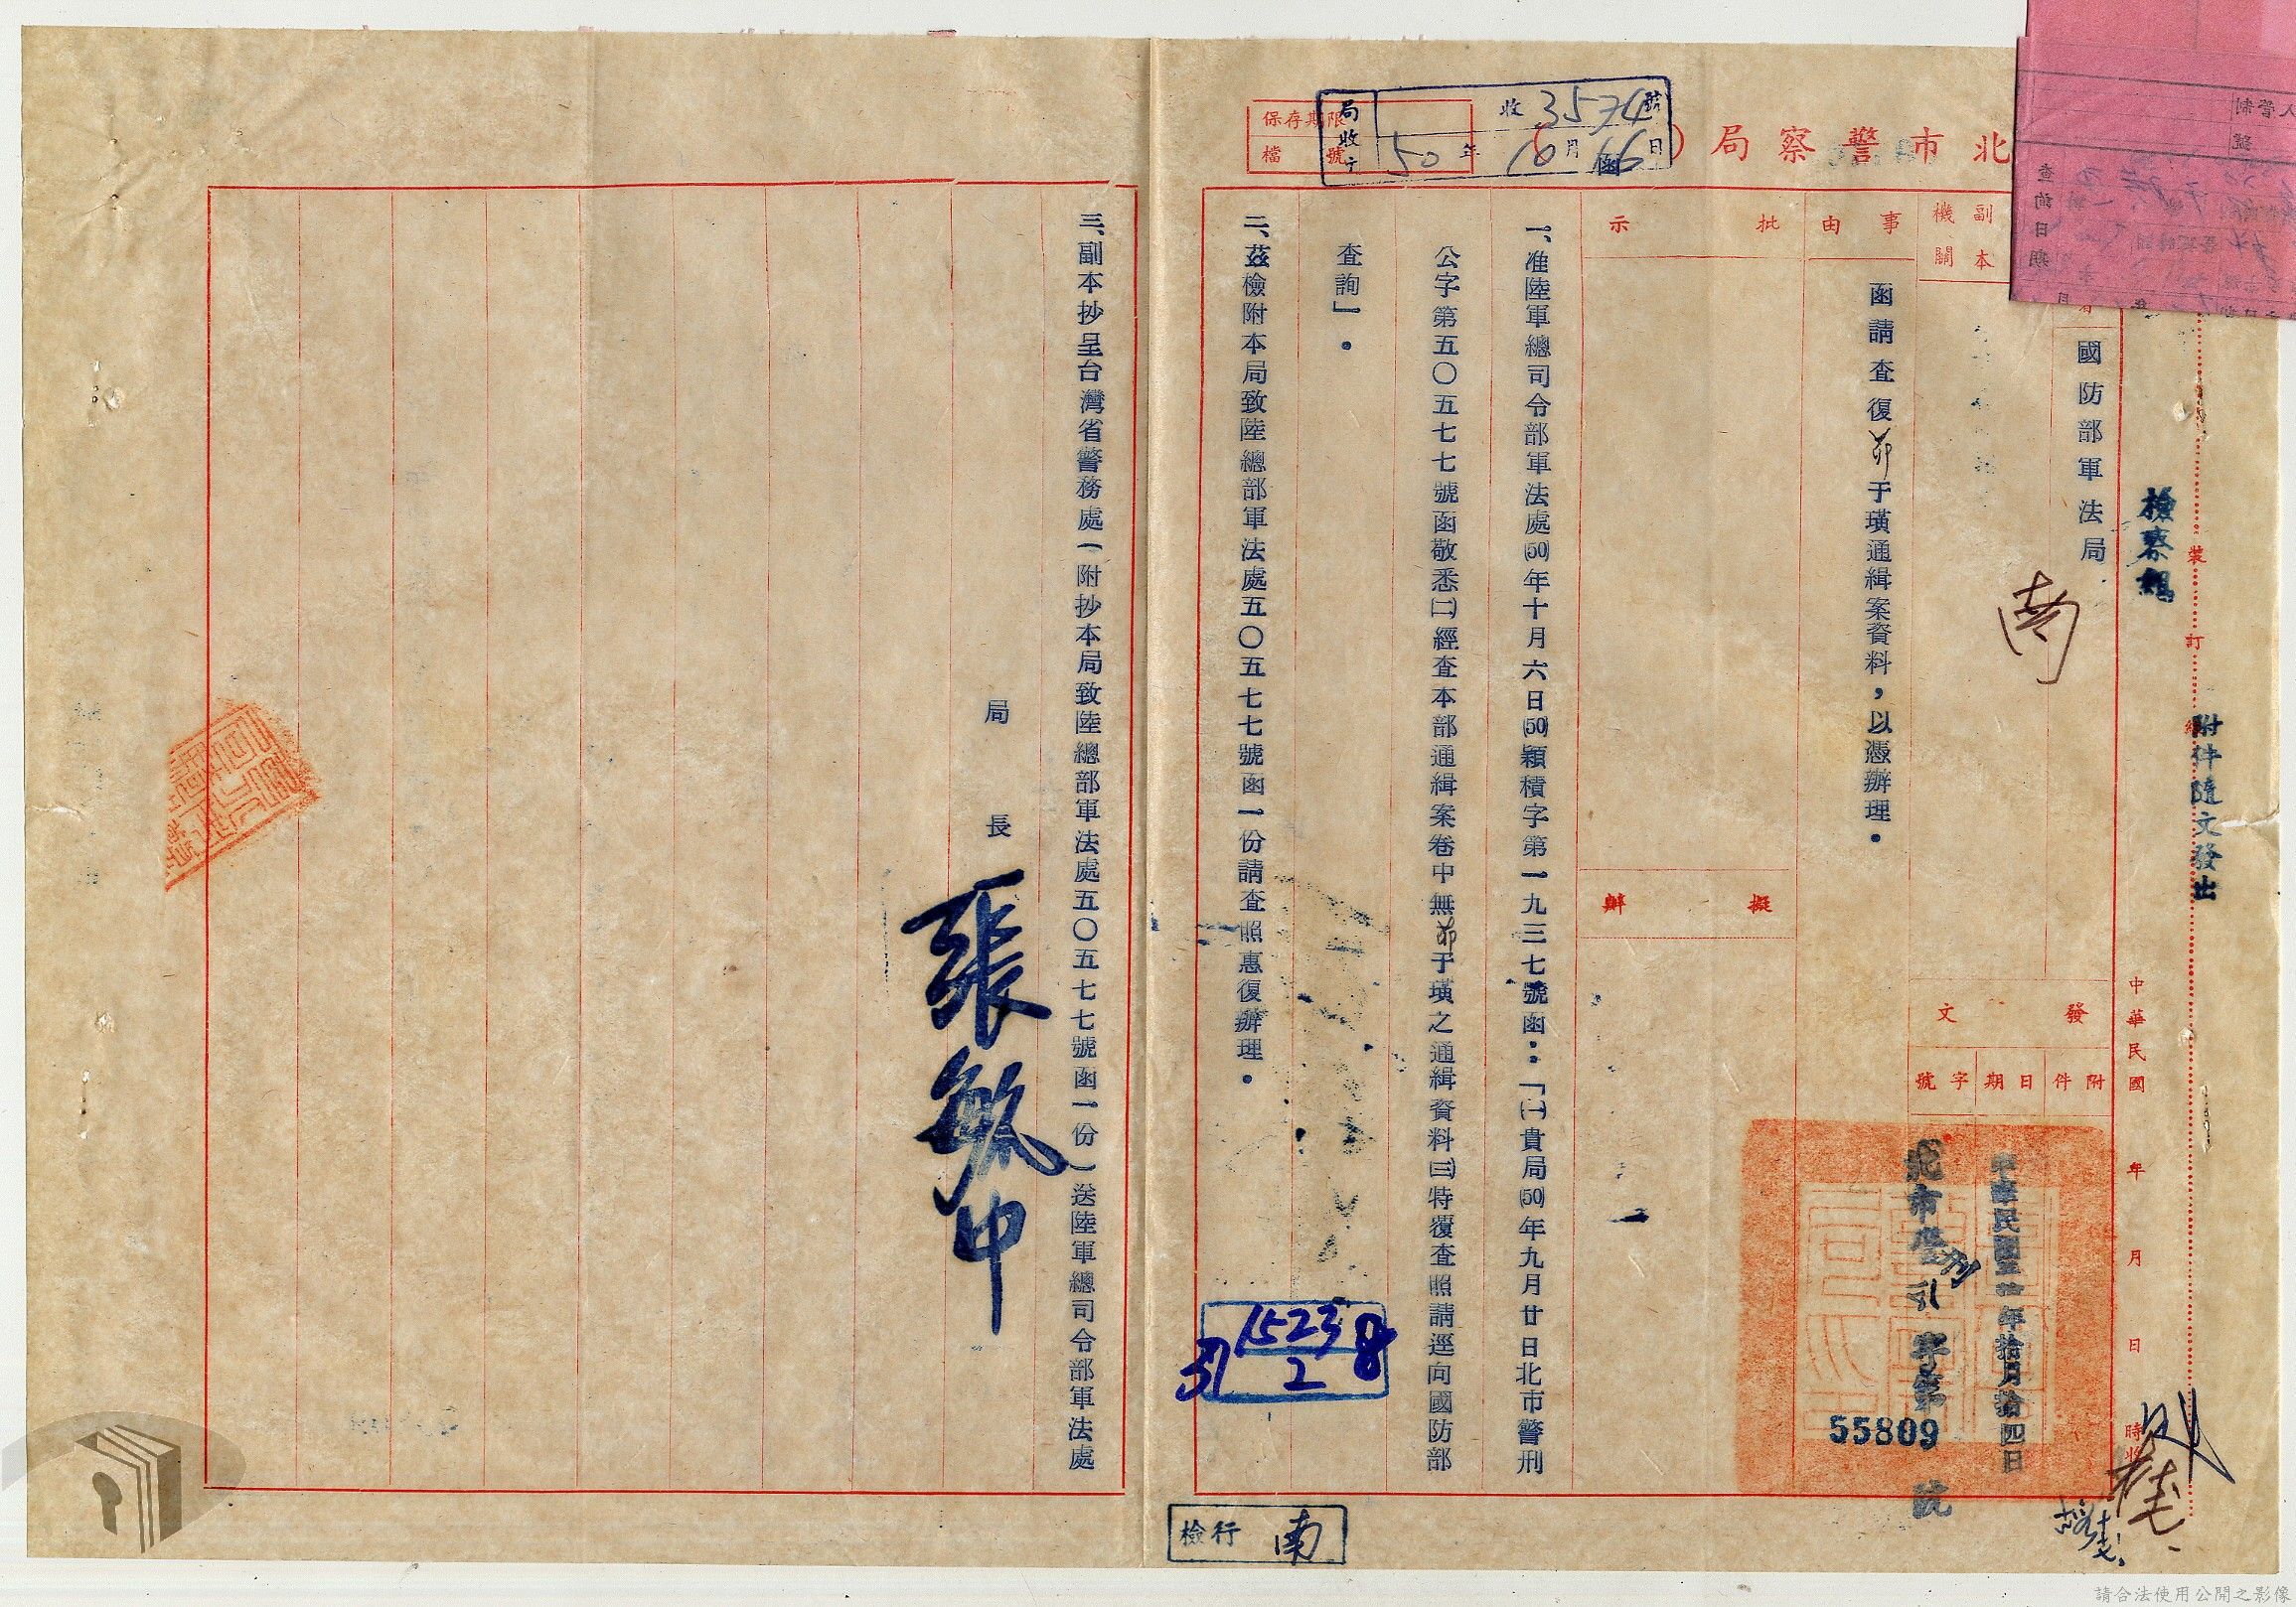 北市警察局（函）
保存期限
檔號
局收
收3574號
50年10月16日
查詢日期
檢察組
裝
訂
附件隨文發出
國防部軍法局
南
副本
機關
發文
附件
日期
字號
中華民國 年 月 日 時
中華民國五十年拾月拾四日
北市警刑引字第
55809
號
事由
函請查復茆于璜通緝案資料，以憑辦理。
批示
擬辦
一、准陸軍總司令部軍法處(50)年十月六日(50)穎積字第一九三七號函：「㈠貴局(50)年九月廿日北市警刑
公字第五〇五七七號函敬悉㈡經查本部通緝案卷中無茆于璜之通緝資料㈢特覆查照請逕向國防部
查詢」。
二、茲檢附本局致陸總部軍法處五〇五七七號函一份請查照惠復辦理。
15238
2
檢行 南
三、副本抄呈台灣省警務處（附抄本局致陸總部軍法處五〇五七七號函一份）送陸軍總司令部軍法處
局長 張毓中
請合法使用公開之影像